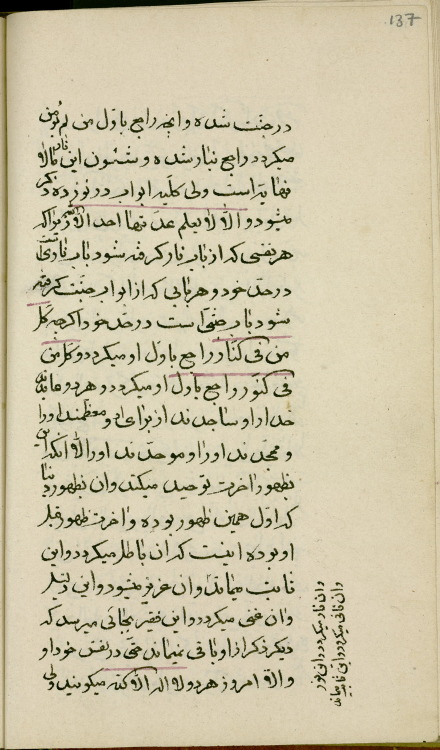 137
در جنت شده و انچه راجع باول من لم یؤمن
میگردد راجع بنار شده و شئون این نار الا
نهایة است ولی کلیه ابواب در نوزده ذکر
میشود و الا لا یعلم عدتها احد الا الله زیراکه
هر نفسی که از باب نار گرفته شود باب ناری است
در حد خود و هر بابی که از ابواب جنت گرفته
شود باب جنتی است در حد خود اگرچه کل
من فی النار راجع باول او میگردد و کل من
فی النور راجع باول او میگردد و هر دو عابدند
خدا را و ساجدند از برای او و معظمند او را
و ممجدند او را و موحدند او را الا آنکه این
بظهور اخرت توحید میکند و ان بظهور دنیا
که اول همین ظهور بوده و اخرت ظهور قبل
او بوده اینست که ان باطل میگردد و این
ثابت میماند و ان عزیز میشود و این ذلیل
و ان غنی میگردد و این فقیر بجائی میرسد که
دیگر ذکر از او باقی نمیماند حتی در نفس خود او
و الا امروز هر دو لا اله الا الله میگویند ولی
وان نار میگردد و این نور
وان فانی میگردد و این باقی میماند